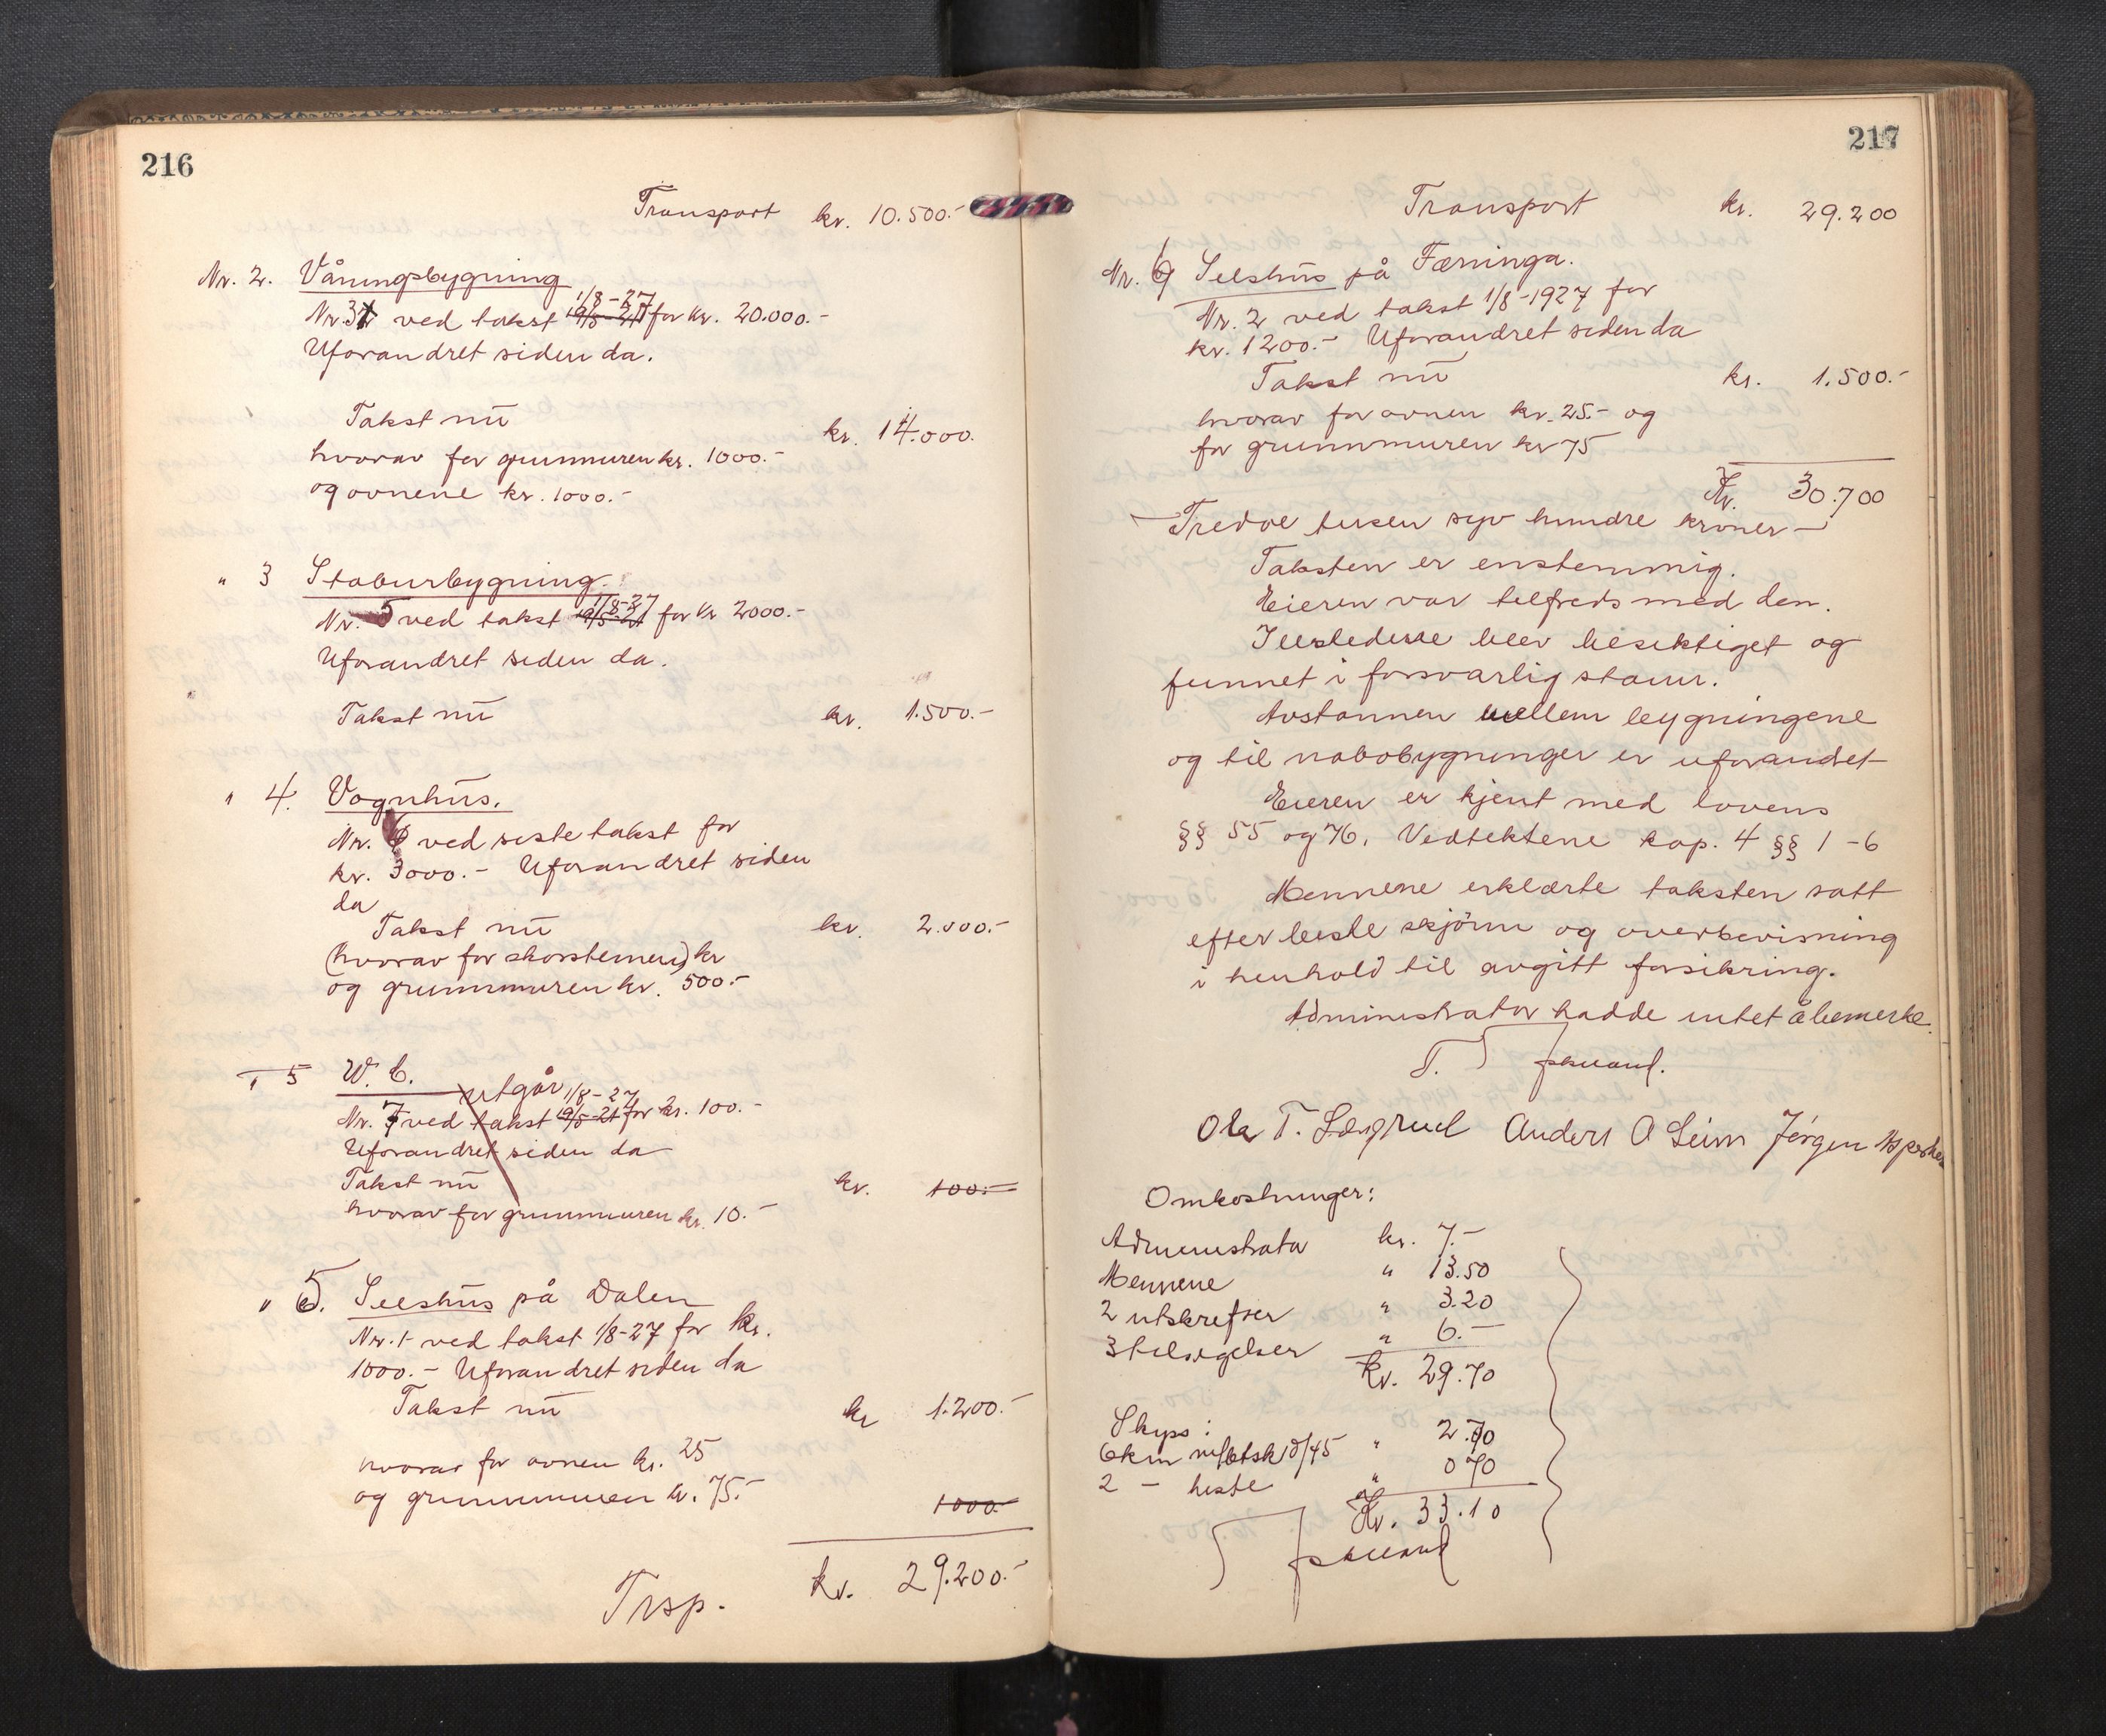 216
Transport kr. 10.500.-
Nr. 2. Våningsbygning
1/8-27
Nr. 3 ved takst 19/5-21 for kr. 20.000.-
Uforandret siden da.
Takst nu kr. 14.000.
hvorav for grunmuren kr. 1000.-
og ovnene kr. 1000.-
" 3 Stabursbygning.
1/8-27
Nr. 5 ved takst 19/5-21 for kr 2000.-
Uforandret siden da.
Takst nu kr. 1.500.-
" 4. Vognhus.
Nr. 6 ved siste takst for
kr. 3000.- Uforandret siden
da
Takst nu kr. 2.000.-
(hvorav for skorstenen) kr
og grunnmuren kr. 500.-
" 5 W. C.
utgår 1/8-27
Nr. 7 ved takst 19/5-21 for kr. 100.-
Uforandret siden da
Takst nu kr. 100.-
hvorav for grunnmuren kr. 10.-
" 5. Selshus på Dalen
Nr. 1 ved takst 1/8-27 for kr.
1000.- Uforandret siden da
Takst nu kr 1.200.-
hvorav for ovnen kr. 25
og grunnmuren kr. 75.-
1000.
Trsp. kr. 29.200.-
217
Transport kr. 29.200
Nr. 6 Selshus på Færninga.
Nr. 2 ved takst 1/8-1927 for
kr. 1200.- Uforandret siden da
Takst nu kr. 1.500.-
hvorav for ovnen kr. 25.- og
for grunnmuren kr 75
Kr. 30.700
Tredve tusen syv hundre kroner
Taksten er enstemmig.
Eieren var tilfreds med den.
Ildstederne blev besiktiget og
funnet i forsvarlig stann.
Avstannen mellem bygningene
og til nabobygninger er uforandret
Eieren er kjent med lovens
§§ 55 og 76. Vedtektene kap. 4 §§ 1-6
Mennene erklærte taksten satt
efter beste skjönn og overbevisning
i henhold til avgitt forsikring.
Administrator hadde intet å bemerke.
Ola T. Lægreid Anders O Leim Jørgen
Omkostninger:
Administrator kr. 7.-
Mennene " 13.50
2 utskrefter " 3.20
3 tilsigelser " 6.-
Kr. 29.70
Skyss:
6 km 10/45 " 2.70
2 - heste " 0.70
Kr. 33.10